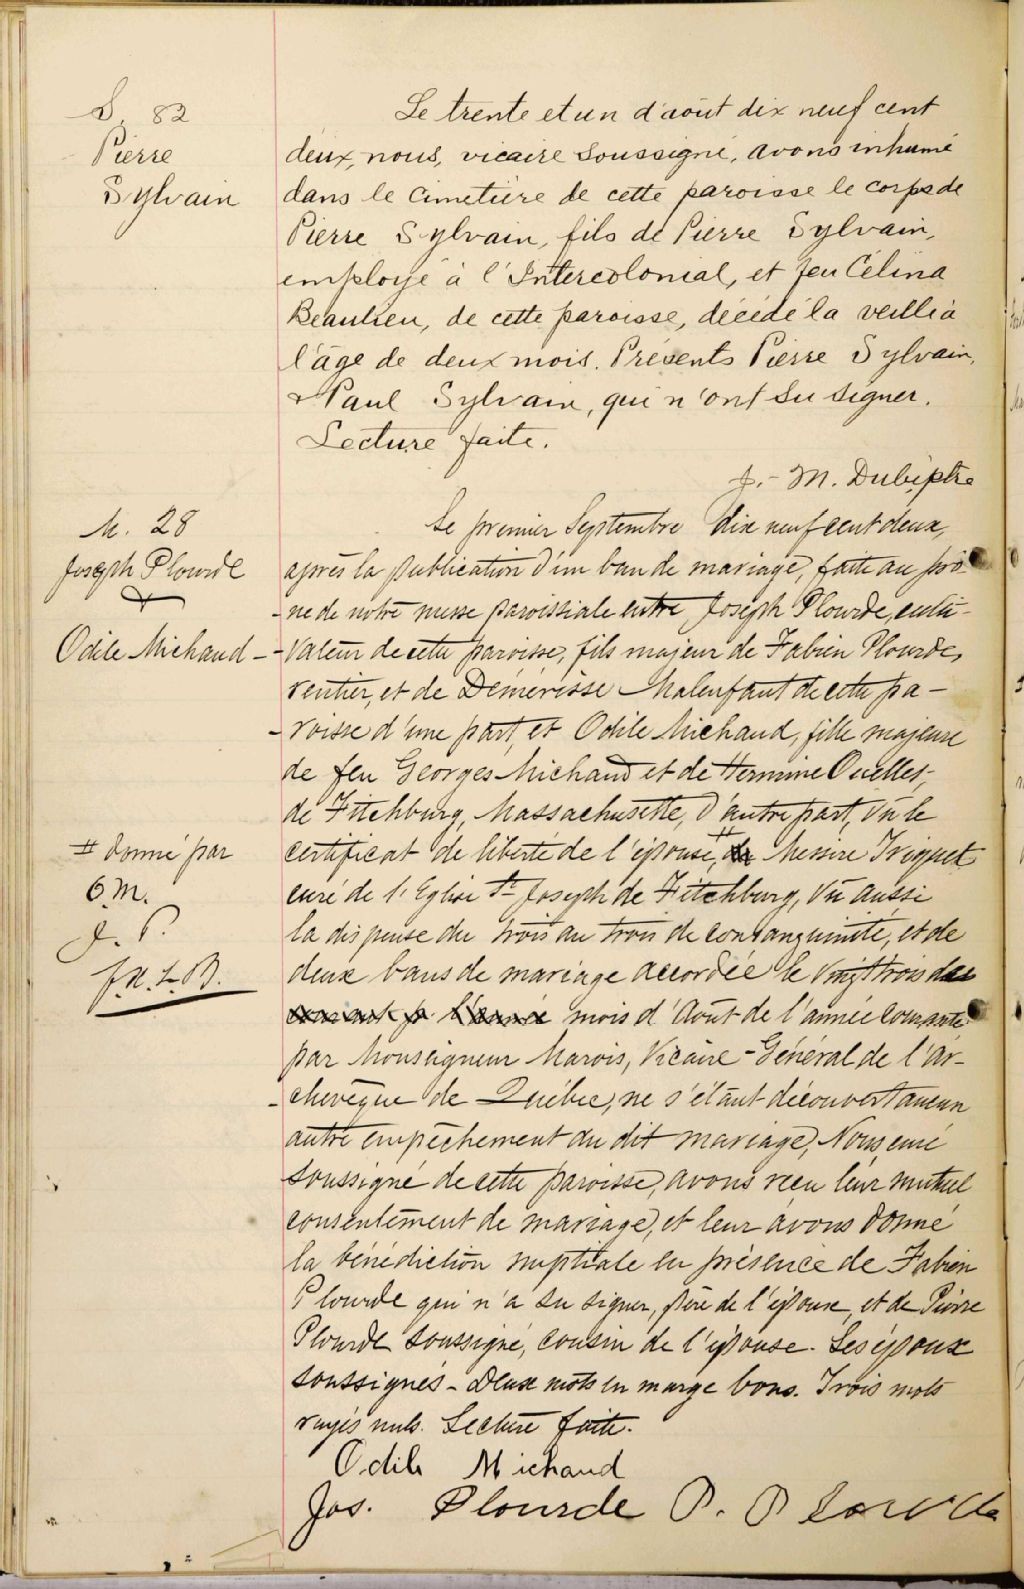 S. 82
Pierre
Sylvain
Le trente et un d'août dix neuf cent
deux, nous, vicaire soussigné, avons inhumé
dans le cimetière de cette paroisse le corps de
Pierre Sylvain, fils de Pierre Sylvain,
employé à l'Intercolonial, et feu Célina
Beaulieu, de cette paroisse, décédé la veille à
l'âge de deux mois. Présents Pierre Sylvain,
& Paul Sylvain, qui n'ont su signer.
Lecture faite.
J.-M. Dubé, ptre
M. 28
Joseph Plourde
&
Odile Michaud
Le premier Septembre dix neuf cent deux,
après la publication d'un ban de mariage, faite au prô-
-ne de notre messe paroissiale entre Joseph Plourde, culti-
-vateur de cette paroisse, fils majeur de Fabien Plourde,
rentier, et de Démérisse Malenfant de cette pa-
-roisse d'une part, et Odile Michaud, fille majeure
de feu Georges Michaud et de Hermine Ouellet,
de Fitchburg, Massachusetts, d'autre part, Vu le
certificat de liberté de l'épouse, # Messire
# donné par
O. M.
J. P.
curé de l'Eglise St Joseph de Fitchburg, Vu aussi
la dispense du trois au trois de consanguinité, et de
deux bans de mariage accordée le vingt trois du
mois d'Août de l'année courante
par Monseigneur Marois, Vicaire-Général de l'Ar-
-chevêque de Québec, ne s'étant découvert aucun
autre empêchement au dit mariage, Nous, curé
soussigné de cette paroisse, avons reçu leur mutuel
consentement de mariage, et leur avons donné
la bénédiction nuptiale en présence de Fabien
Plourde qui n'a su signer, père de l'époux, et de Pierre
Plourde soussigné, cousin de l'épouse. Les époux
soussignés - Deux mots en marge bons. Trois mots
rayés nuls. Lecture faite.
Odile Michaud
Jos. Plourde P. Plourde